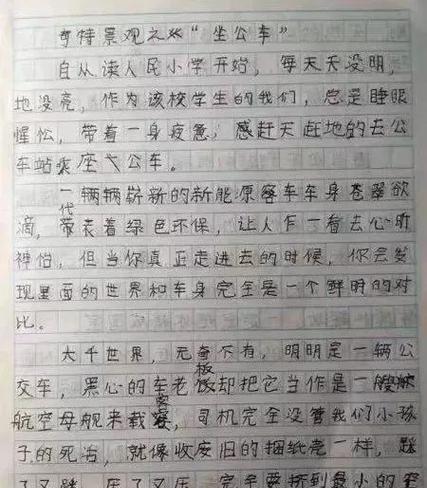 奇特景观之 "坐公车"
自从读人民小学开始，每天天没明，
地没亮，作为该校学生的我们，总是睡眼
惺忪，带着一身疲惫，感赶天赶地的去公
车站乘座公车。
一辆辆崭新的新能原客车车身苍翠欲
滴，代表着绿色环保，让人乍一看去心旷
神怡，但当你真正走进去的时候，你会发
现里面的世界和车身完全是一个鲜明的对
比。
大千世界，无奇不有，明明是一辆公
交车，黑心的车老板却把它当作是一艘
航空母舰来载客，司机完全没管我们小孩
子的死活，就像收废旧的捆纸壳一样，踩
了又踩，压了又压，完全要挤到最小的空